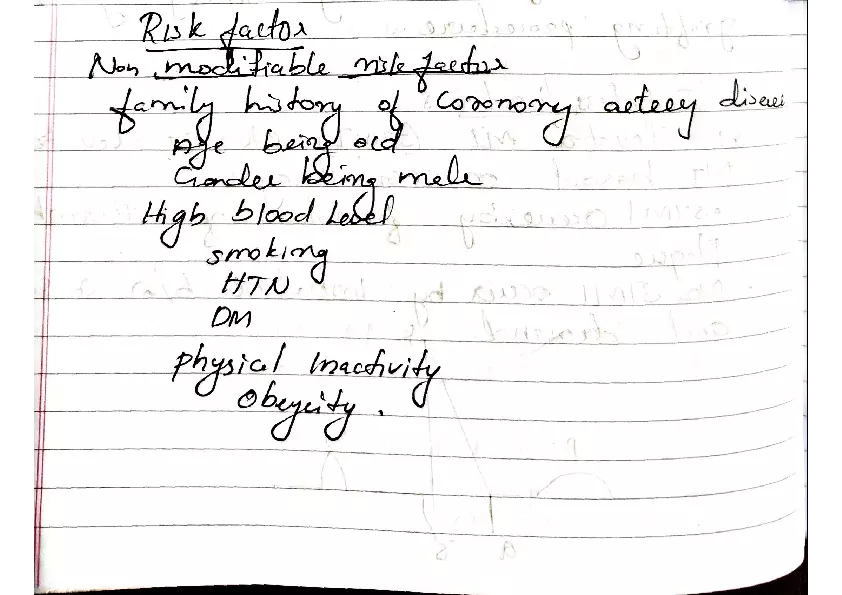 Risk factor
Non modifiable risk factor
family history of coronory artery
Age being old
Gender being male
High blood Level
smoking
HTN
DM
physical Inactivity
Obeycity.